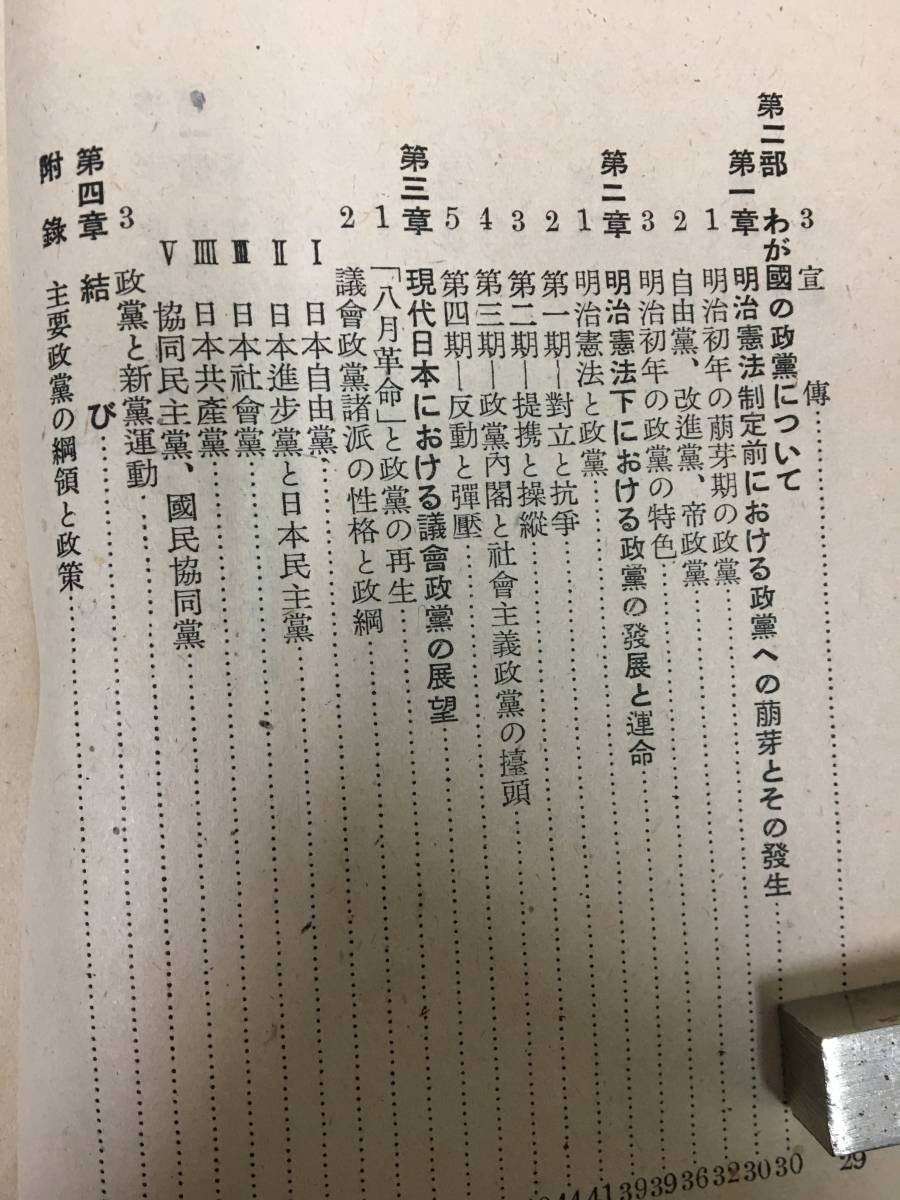 3 宣傳 29
第二部 わが國の政黨について
第一章 明治憲法制定前における政黨への萠芽とその發生 30
1 明治初年の萠芽期の政黨 30
2 自由黨、改進黨、帝政黨 32
3 明治初年の政黨の特色 36
第二章 明治憲法下における政黨の發展と運命 39
1 明治憲法と政黨 39
2 第一期―對立と抗爭 41
3 第二期―提携と操縱 44
4 第三期―政黨內閣と社會主義政黨の擡頭
5 第四期―反動と彈壓
第三章 現代日本における議會政黨の展望
1 「八月革命」と政黨の再生
2 議會政黨諸派の性格と政綱
Ⅰ 日本自由黨
Ⅱ 日本進步黨と日本民主黨
Ⅲ 日本社會黨
Ⅲ 日本共產黨
Ⅴ 協同民主黨、國民協同黨
3 政黨と新黨運動
第四章 結び
附錄 主要政黨の綱領と政策